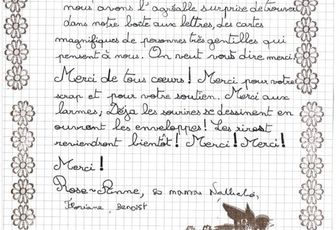 nous avons l'agréable surprise de trouver
dans notre boite aux lettres, des cartes
magnifiques de personnes très gentilles qui
pensent à nous! On veut vous dire merci!
Merci de tous cœurs! Merci pour votre
scrap et pour votre soutien. Merci aux
larmes, Déja les sourires se dessinent en
ouvrant les enveloppes! Les rires
reviendront bientôt! Merci! Merci!
Merci!
Rose-Anne, sa maman
Floriane, Benoist